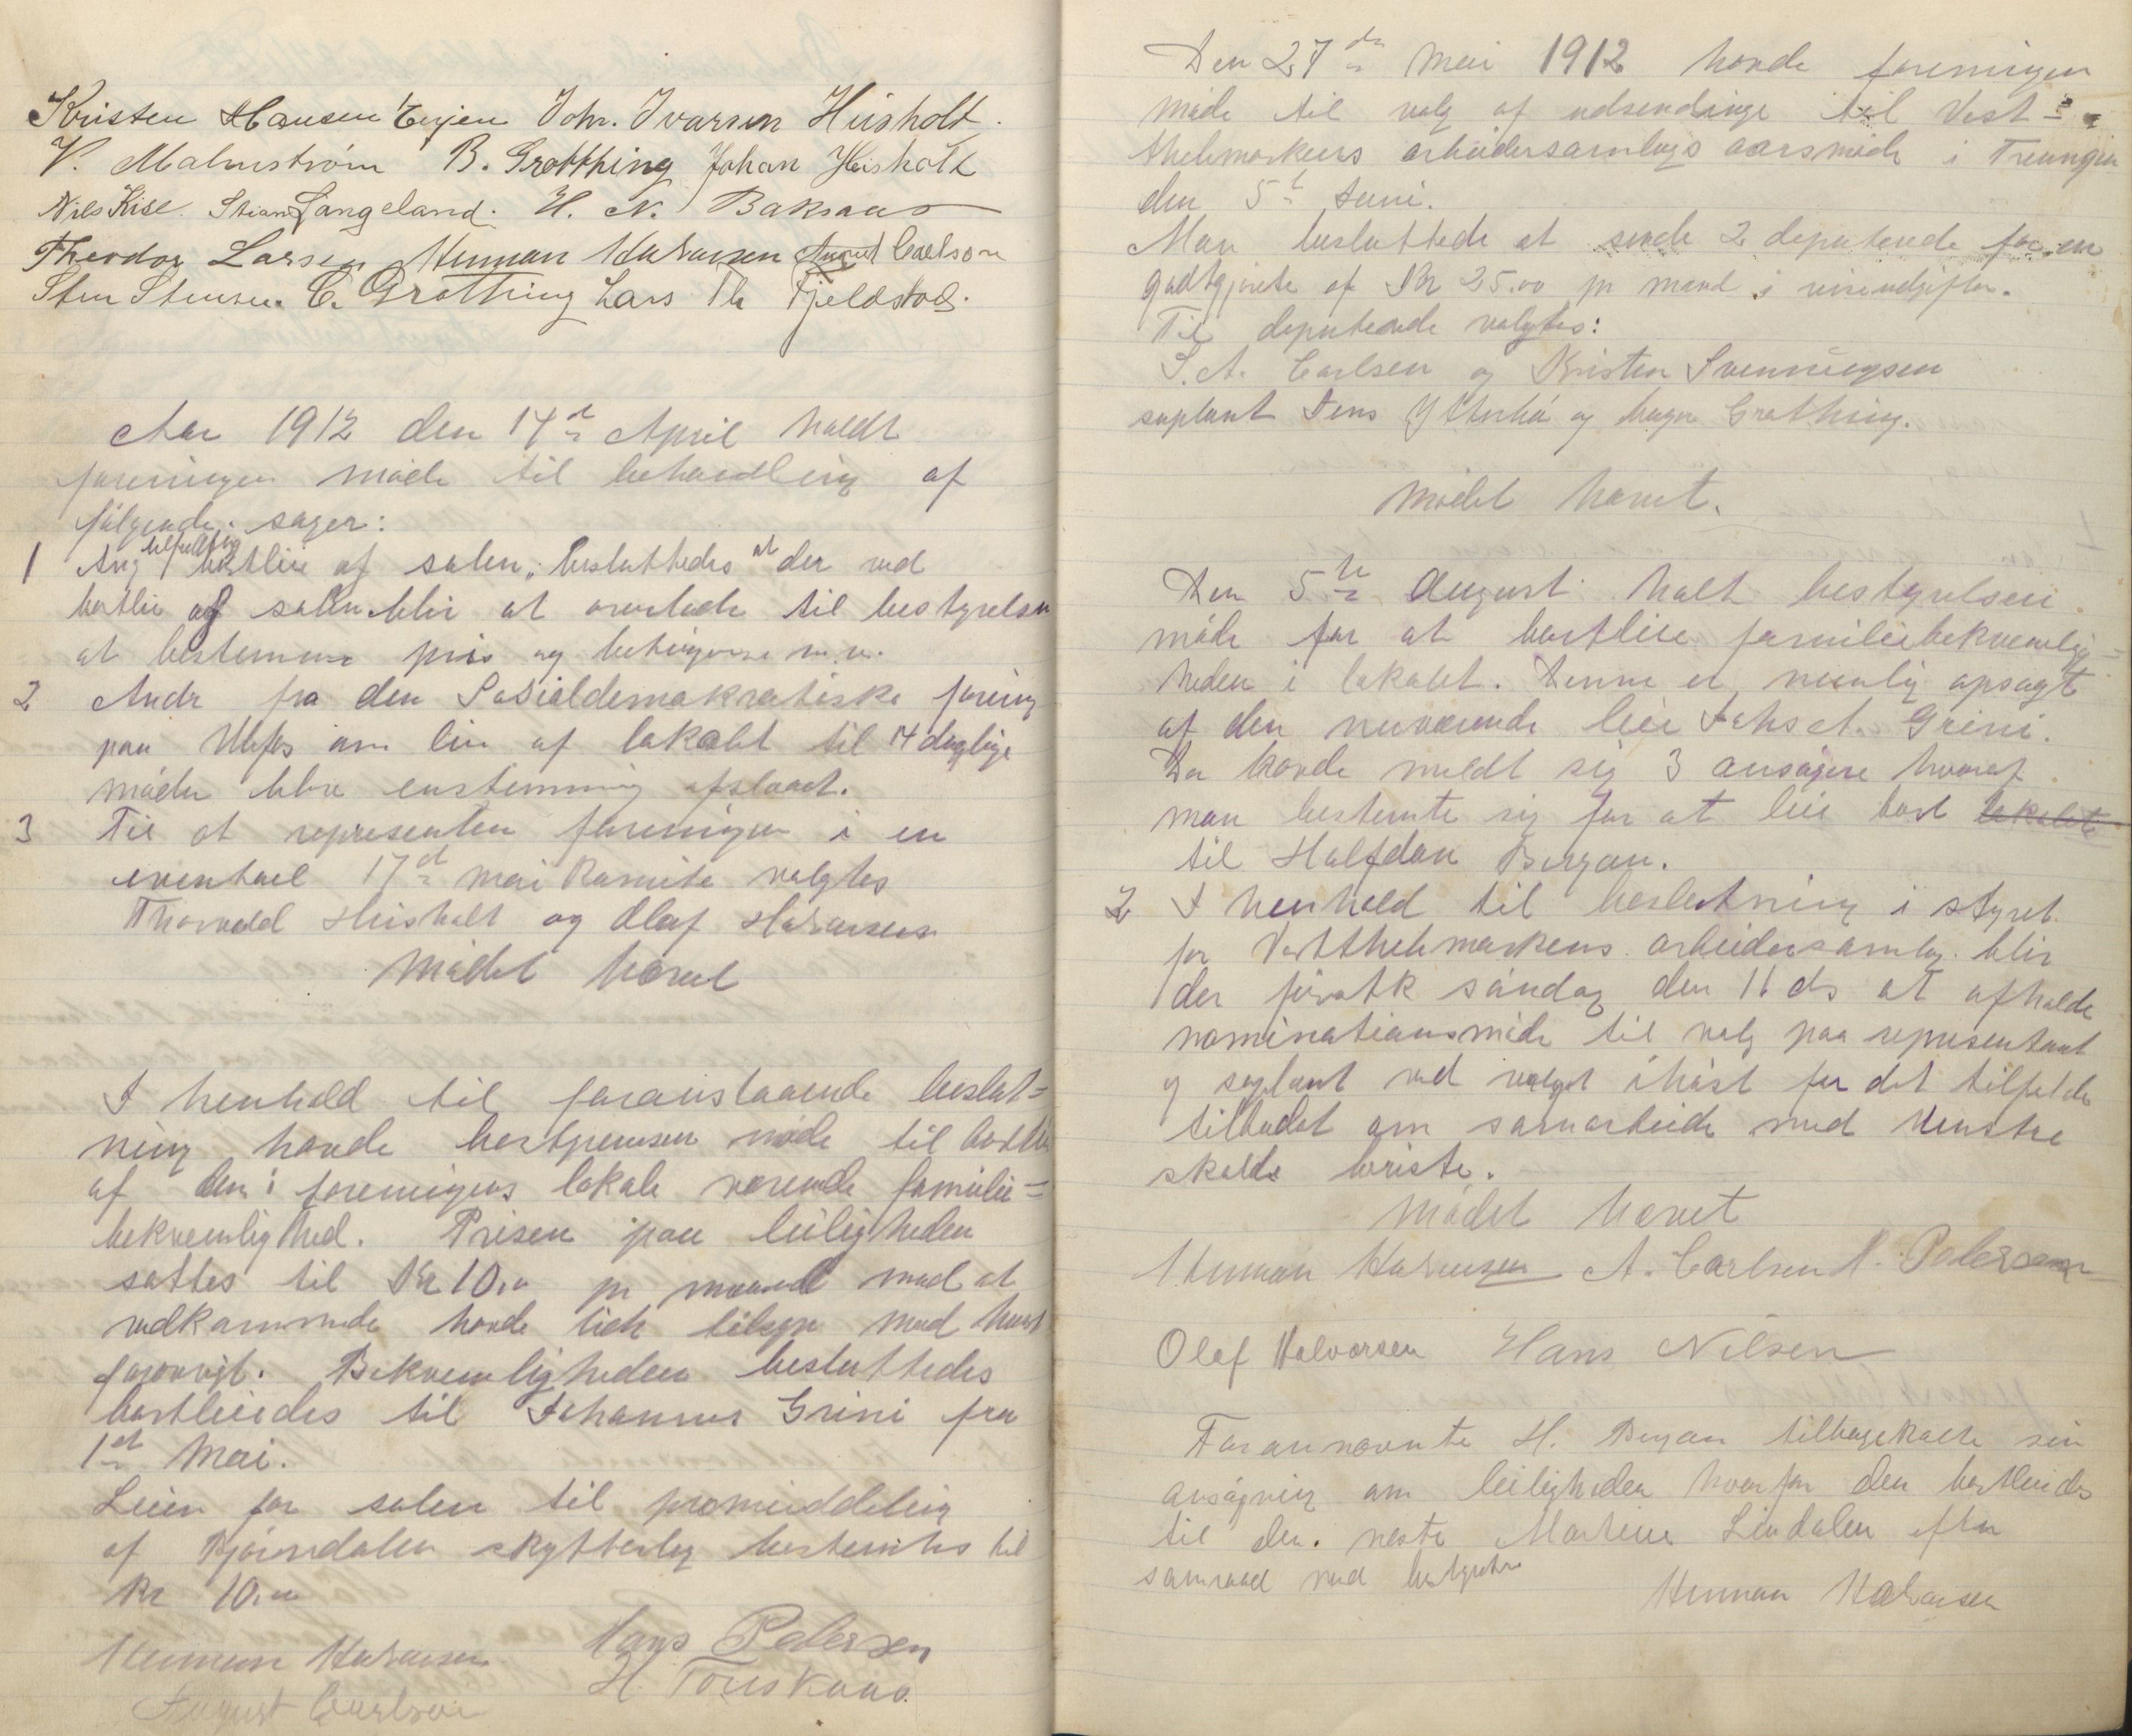 Kristen Hansen Eijen Johr. Ivarsen Hiisholt.
V. Malmström B. Grotthing Johan Hiisholt
Nils Kise. Stian Langeland. H. N. Baksaas
Theodor Larsen Herman Halvorsen August Carlson
Sten Stensen. C. Grotthing Lars Th Fjeldstad.
Aar 1912 den 14de April holdt
foreningen møde til behandling af
følgende sager:
1 Ang tilfeldig bortleie af salen, besluttedes at der ved
bortleie af salen blir at overlade til bestyrelsen
at bestemme pris og betingelse m.v.
2 Andr fra den Sosialdemokratiske foreing
paa Ulefos om leie af lokalet til 14 daglige
møder blev enstemmig afslaaet.
3 Til at representere foreningen i en
eventuel 17de mai komite valgtes
Thorvald Hiisholt og Olaf Halvorsen
Mødet hævet
I henhold til foranstaaende beslut=
ning havde bestyrelsen møde til bortleie
af den i foreningens lokale værende familie=
bekvemlighed. Prisen paa leiligheden
sattes til Kr 10.00 pr maaned mod at
vedkommende havde tilsyn med huset
forøvrigt. Bekvemligheden besluttedes
bortleiedes til Johannes Grini fra
1st Mai.
Leien for salen til premieuddeling
af Bjørndalen skytterlag bestemtes til
Kr 10.00
Herman Halvorsen Hans Pedersen
August Carlson H. Touskaas
Den 27de Mai 1912 havde foreningen
møde til valg af udsendinge til Vest=
thelemarkens arbeidersamlags aarsmøde i Treungen
den 5te Juni.
Man besluttede at sende 2 deputerede for en
godtgjørelse af Kr 25.00 pr mand i reiseudgifter.
Til deputerede valgtes:
S. A. Carlsen og Kristen Svenningsen
suplent Jens Ytterbø og Grotthing.
Mødet hævet.
Den 5te August holt bestyrelsen
møde for at bortleie familiebekvemlig=
heden i lokalet. Denne er nemlig opsagt
af den nuværende leier Johs A. Grini.
Der havde meldt sig 3 ansøgere hvoraf
man bestemte sig for at leie bort lokalet
til Halfdan Bergan.
2 I henhold til beslutning i styret
for Vestthelemarkens arbeidersamlag blir
der førstk søndag den 11 ds at afholde
nominationsmøde til valg paa representant
og suplent ved valget i høst for det tilfelde
tilbudet om samarbeide med Venstre
skulde briste.
Mødet hævet
Herman Halvorsen A. Carlsen H. Pedersen
Olaf Halvorsen Hans Nilsen
Forannævnte H. Bergan tilbagekaldte sin
ansøgning om leiligheden hvorfor den bortleiedes
til den neste Martin Lindalen efter
samraad med bestyrelsen
Herman Halvorsen